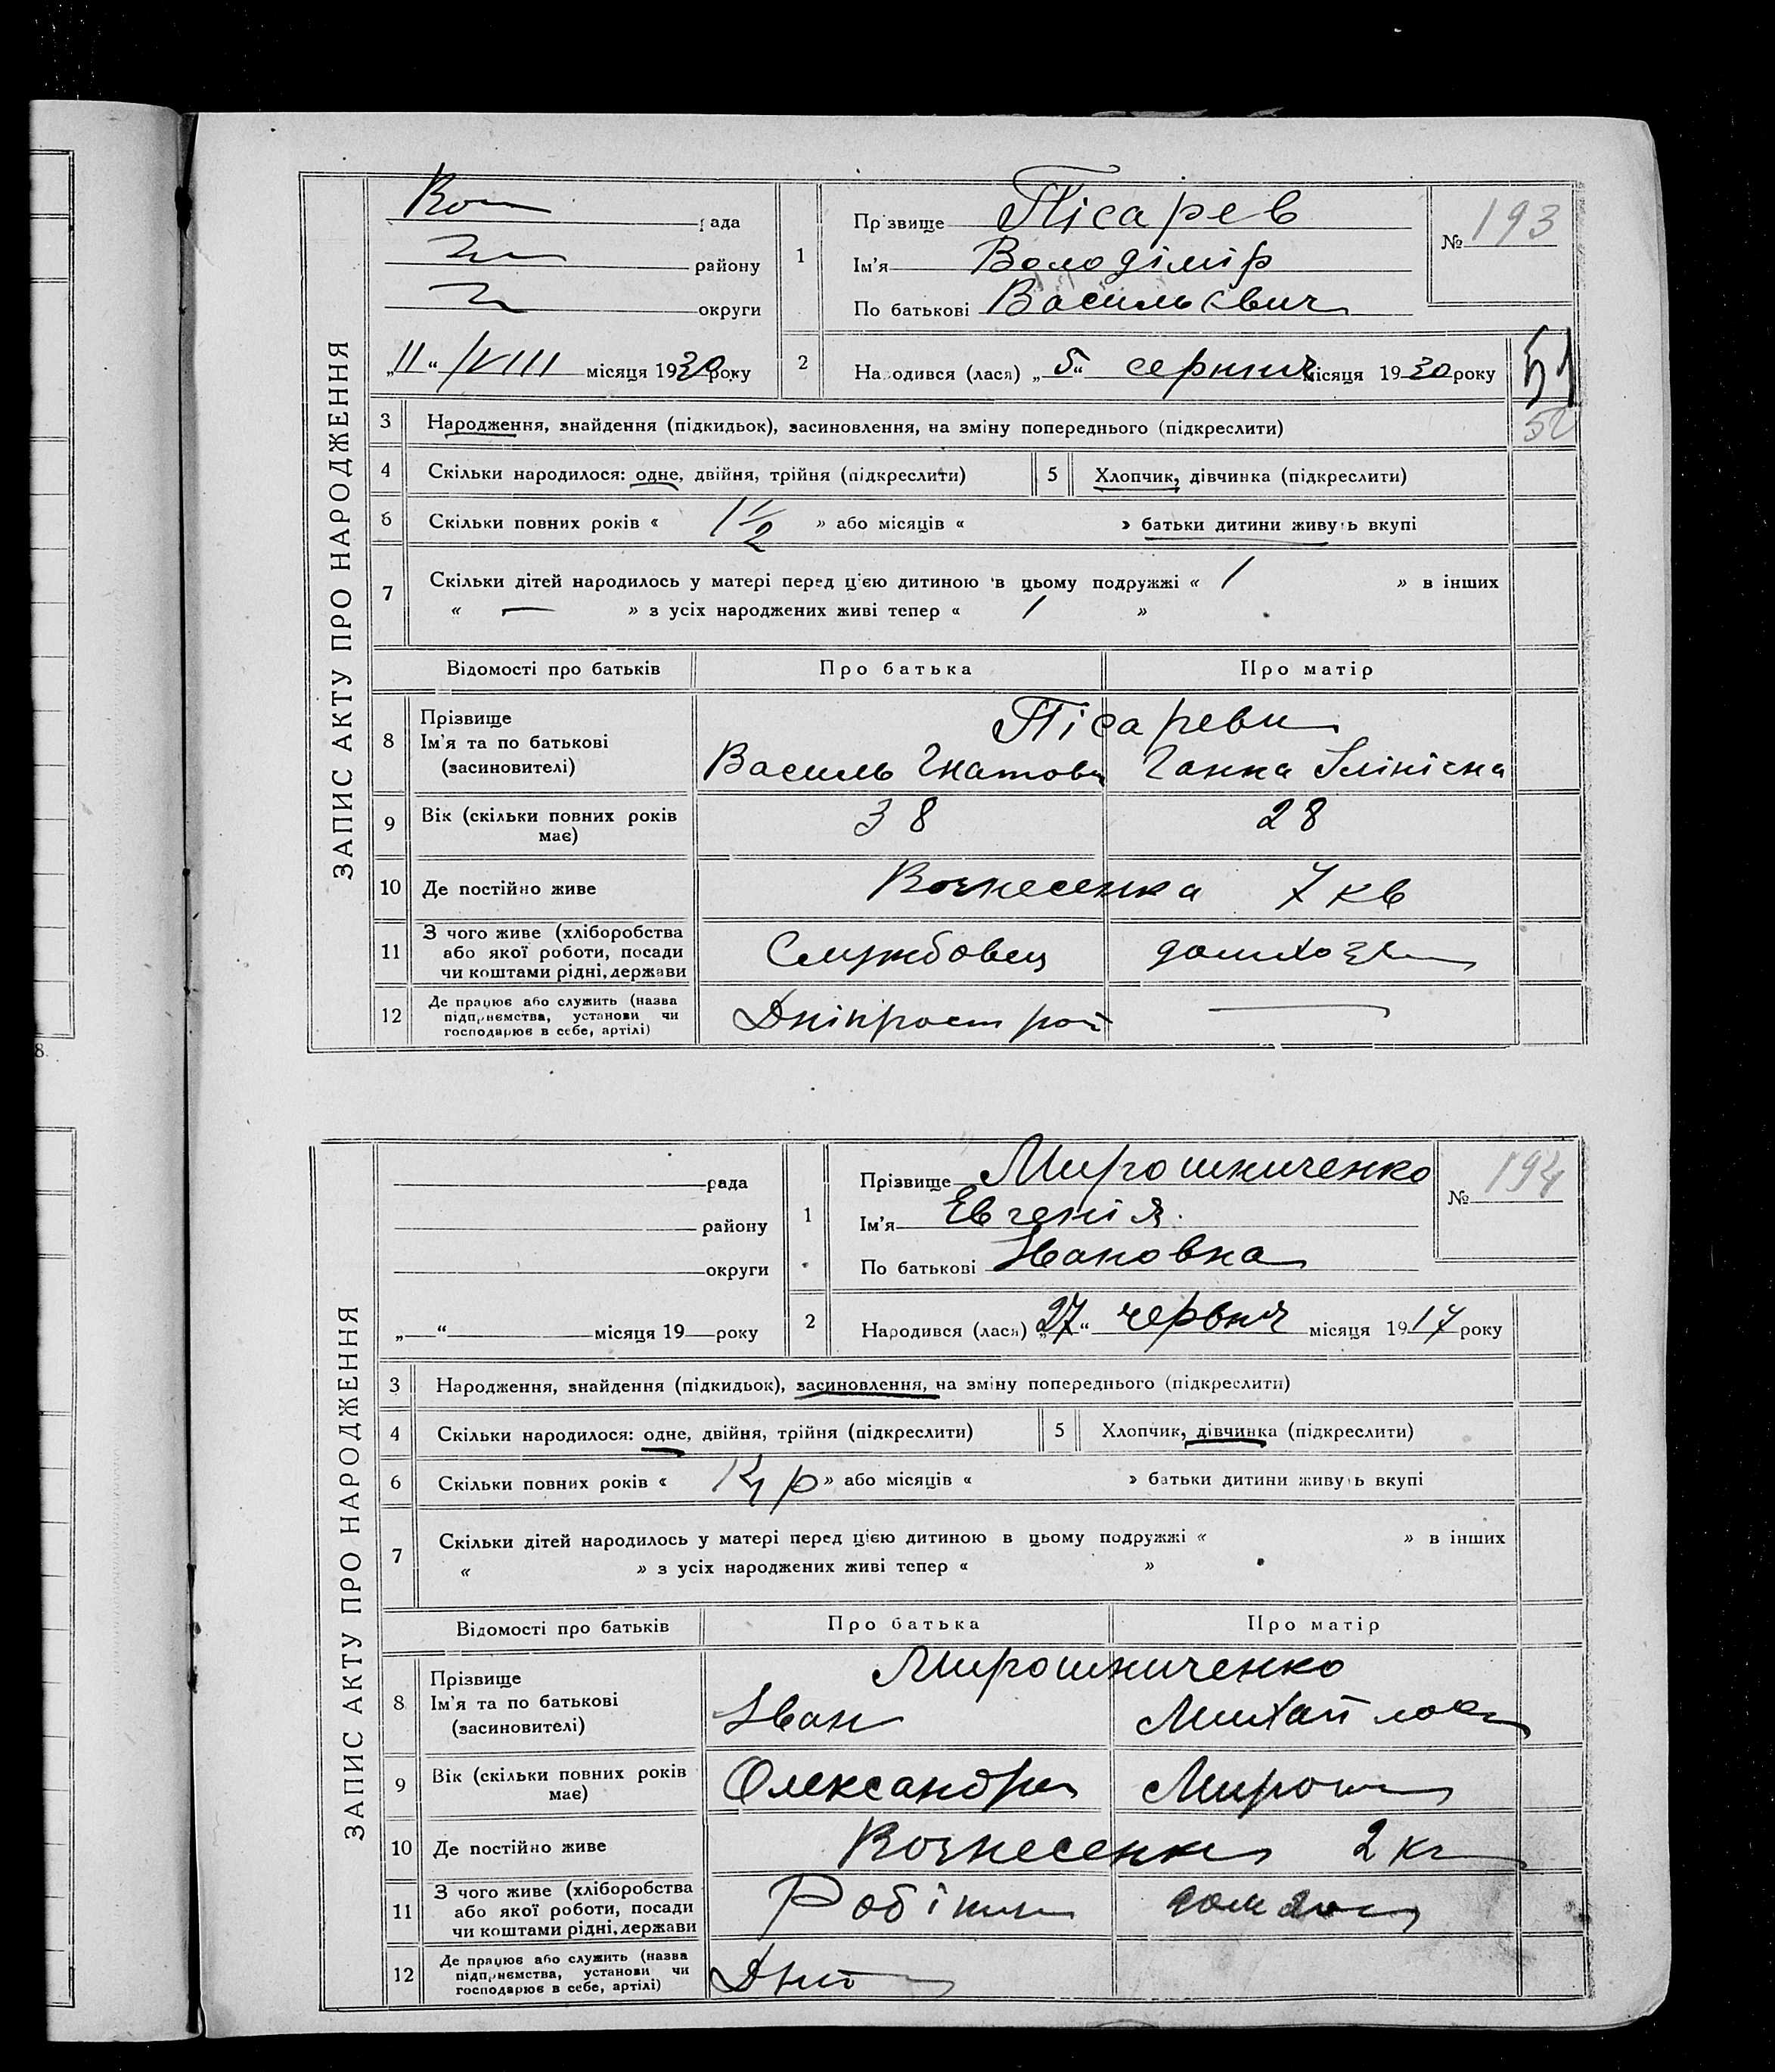 ЗАПИС АКТУ ПРО НАРОДЖЕННЯ
рада
району
округи
„11“ VIII місяця 1930 року
1
Прізвище Пісарев
Ім'я Володімір
По батькові Васильєвич
№ 193
2
Народився (лася) „5“ серпня місяця 1930 року
51
52
3 Народження, знайдення (підкидьок), засиновлення, на зміну попереднього (підкреслити)
4 Скільки народилося: одне, двійня, трійня (підкреслити)
5 Хлопчик, дівчинка (підкреслити)
6 Скільки повних років « 1 1/2 » або місяців « » батьки дитини живуть вкупі
7 Скільки дітей народилось у матері перед цією дитиною в цьому подружжі « 1 » в інших
« — » з усіх народжених живі тепер « 1 »
Відомості про батьків Про батька Про матір
8 Прізвище
Ім'я та по батькові
(засиновителі)
Пісареви
Василь Гнатови Ганна
9 Вік (скільки повних років має) 38 28
10 Де постійно живе Вознесенка 7 кв
11 З чого живе (хліборобства
або якої роботи, посади
чи коштами рідні, держави
Службовець
12 Де працює або служить (назва
підприємства, установи чи
господарює в себе, артілі)
Дніпрострой —
8.
ЗАПИС АКТУ ПРО НАРОДЖЕННЯ
рада
району
округи
„—“ місяця 19—року
1
Прізвище Мирошниченко
Ім'я Евгенія
По батькові Івановна
№ 194
2
Народився (лася) „27“ червня місяця 1917 року
3 Народження, знайдення (підкидьок), засиновлення, на зміну попереднього (підкреслити)
4 Скільки народилося: одне, двійня, трійня (підкреслити)
5 Хлопчик, дівчинка (підкреслити)
6 Скільки повних років « р » або місяців « » батьки дитини живуть вкупі
7 Скільки дітей народилось у матері перед цією дитиною в цьому подружжі « » в інших
« » з усіх народжених живі тепер « »
Відомості про батьків Про батька Про матір
8 Прізвище
Ім'я та по батькові
(засиновителі)
Мирошниченко
Іван
9 Вік (скільки повних років має)
10 Де постійно живе Вознесенка 2
11 З чого живе (хліборобства
або якої роботи, посади
чи коштами рідні, держави
Робітник
12 Де працює або служить (назва
підприємства, установи чи
господарює в себе, артілі)